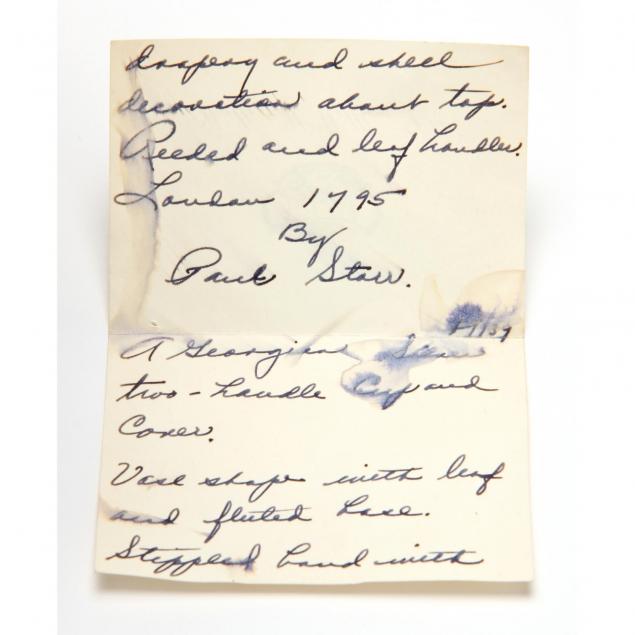 drapery and shell
decoration about top.
Reeded and leaf handles.
London 1795
By
Paul Storr.
A Georgian
two-handle Cup and
Cover.
Vase shape with leaf
and fluted base.
Stippled band with